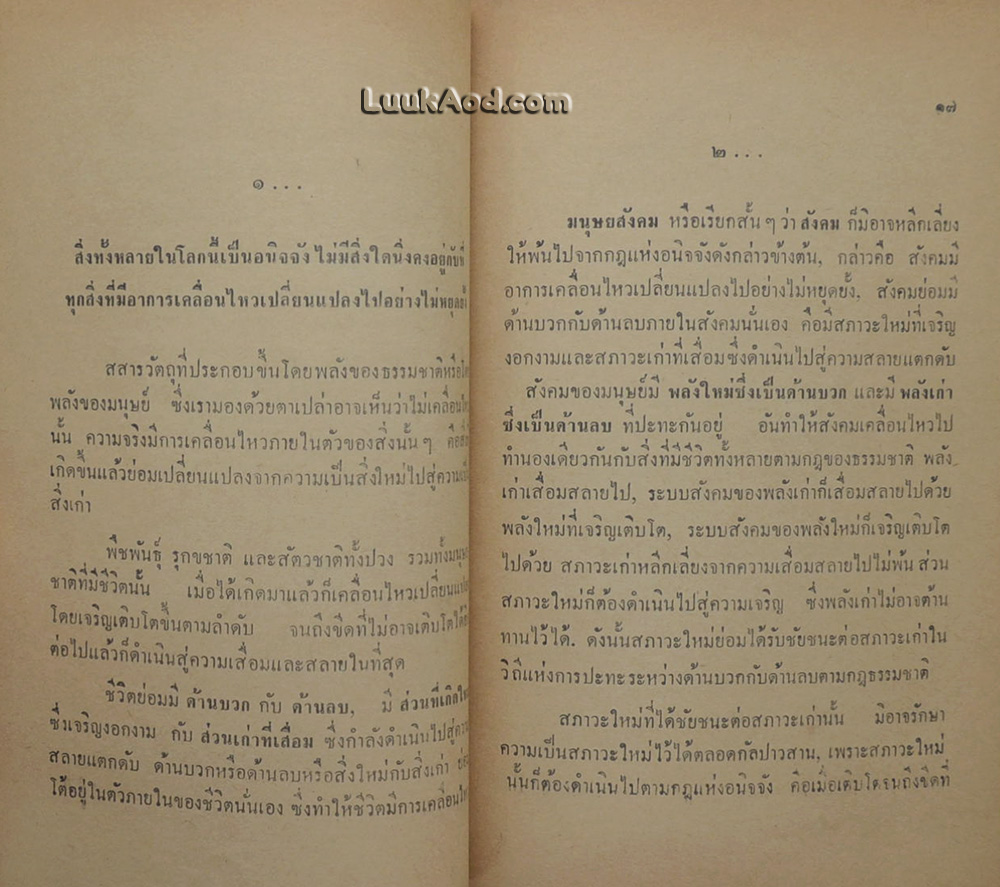 LuukAod.com
๑ ...
สิ่งทั้งหลายในโลกนี้เป็นอนิจจัง ไม่มีสิ่งใดนิ่งคงอยู่กับที่
ทุกสิ่งที่มีอาการเคลื่อนไหวเปลี่ยนแปลงไปอย่างไม่หยุดยั้ง
สสารวัตถุที่ประกอบขึ้นโดยพลังของธรรมชาติหรือ
พลังของมนุษย์ ซึ่งเรามองด้วยตาเปล่าอาจเห็นว่าไม่
นั้น ความจริงมีการเคลื่อนไหวภายในตัวของสิ่งนั้น ๆ คือ
เกิดขึ้นแล้วย่อมเปลี่ยนแปลงจากความเป็นสิ่งใหม่ไปสู่ความ
สิ่งเก่า
พืชพันธุ์ รุกขชาติ และสัตวชาติทั้งปวง รวมทั้ง
ชาติที่มีชีวิตนั้น เมื่อได้เกิดมาแล้วก็เคลื่อนไหว
โดยเจริญเติบโตขึ้นตามลำดับ จนถึงขีดที่ไม่อาจเติบโต
ต่อไปแล้วก็ดำเนินสู่ความเสื่อมและสลายในที่สุด
ชีวิตย่อมมี ด้านบวก กับ ด้านลบ, มี ส่วนที่
ซึ่งเจริญงอกงาม กับ ส่วนเก่าที่เสื่อม ซึ่งกำลังดำเนินไปสู่
สลายแตกดับ ด้านบวกหรือด้านลบหรือสิ่งใหม่กับสิ่งเก่า
โต้อยู่ในตัวภายในของชีวิตนั่นเอง ซึ่งทำให้ชีวิตมีการ
๑๗
๒ ...
มนุษยสังคม หรือเรียกสั้น ๆ ว่า สังคม ก็มิอาจหลีกเลี่ยง
ให้พ้นไปจากกฎแห่งอนิจจังดังกล่าวข้างต้น, กล่าวคือ สังคมมี
อาการเคลื่อนไหวเปลี่ยนแปลงไปอย่างไม่หยุดยั้ง, สังคมย่อมมี
ด้านบวกกับด้านลบภายในสังคมนั่นเอง คือมีสภาวะใหม่ที่เจริญ
งอกงามและสภาวะเก่าที่เสื่อมซึ่งดำเนินไปสู่ความสลายแตกดับ
สังคมของมนุษย์มี พลังใหม่ซึ่งเป็นด้านบวก และมี พลังเก่า
ซึ่งเป็นด้านลบ ที่ปะทะกันอยู่ อันทำให้สังคมเคลื่อนไหวไป
ทำนองเดียวกันกับสิ่งที่มีชีวิตทั้งหลายตามกฎของธรรมชาติ พลัง
เก่าเสื่อมสลายไป, ระบบสังคมของพลังเก่าก็เสื่อมสลายไปด้วย
พลังใหม่ที่เจริญเติบโต, ระบบสังคมของพลังใหม่ก็เจริญเติบโต
ไปด้วย สภาวะเก่าหลีกเลี่ยงจากความเสื่อมสลายไปไม่พ้น ส่วน
สภาวะใหม่ก็ต้องดำเนินไปสู่ความเจริญ ซึ่งพลังเก่าไม่อาจต้าน
ทานไว้ได้. ดังนั้นสภาวะใหม่ย่อมได้รับชัยชนะต่อสภาวะเก่าใน
วิถีแห่งการปะทะระหว่างด้านบวกกับด้านลบตามกฎธรรมชาติ
สภาวะใหม่ที่ได้ชัยชนะต่อสภาวะเก่านั้น มิอาจรักษา
ความเป็นสภาวะใหม่ไว้ได้ตลอดกัลปาวสาน, เพราะสภาวะใหม่
นั้นก็ต้องดำเนินไปตามกฎแห่งอนิจจัง คือเมื่อเติบโตจนถึงขีดที่